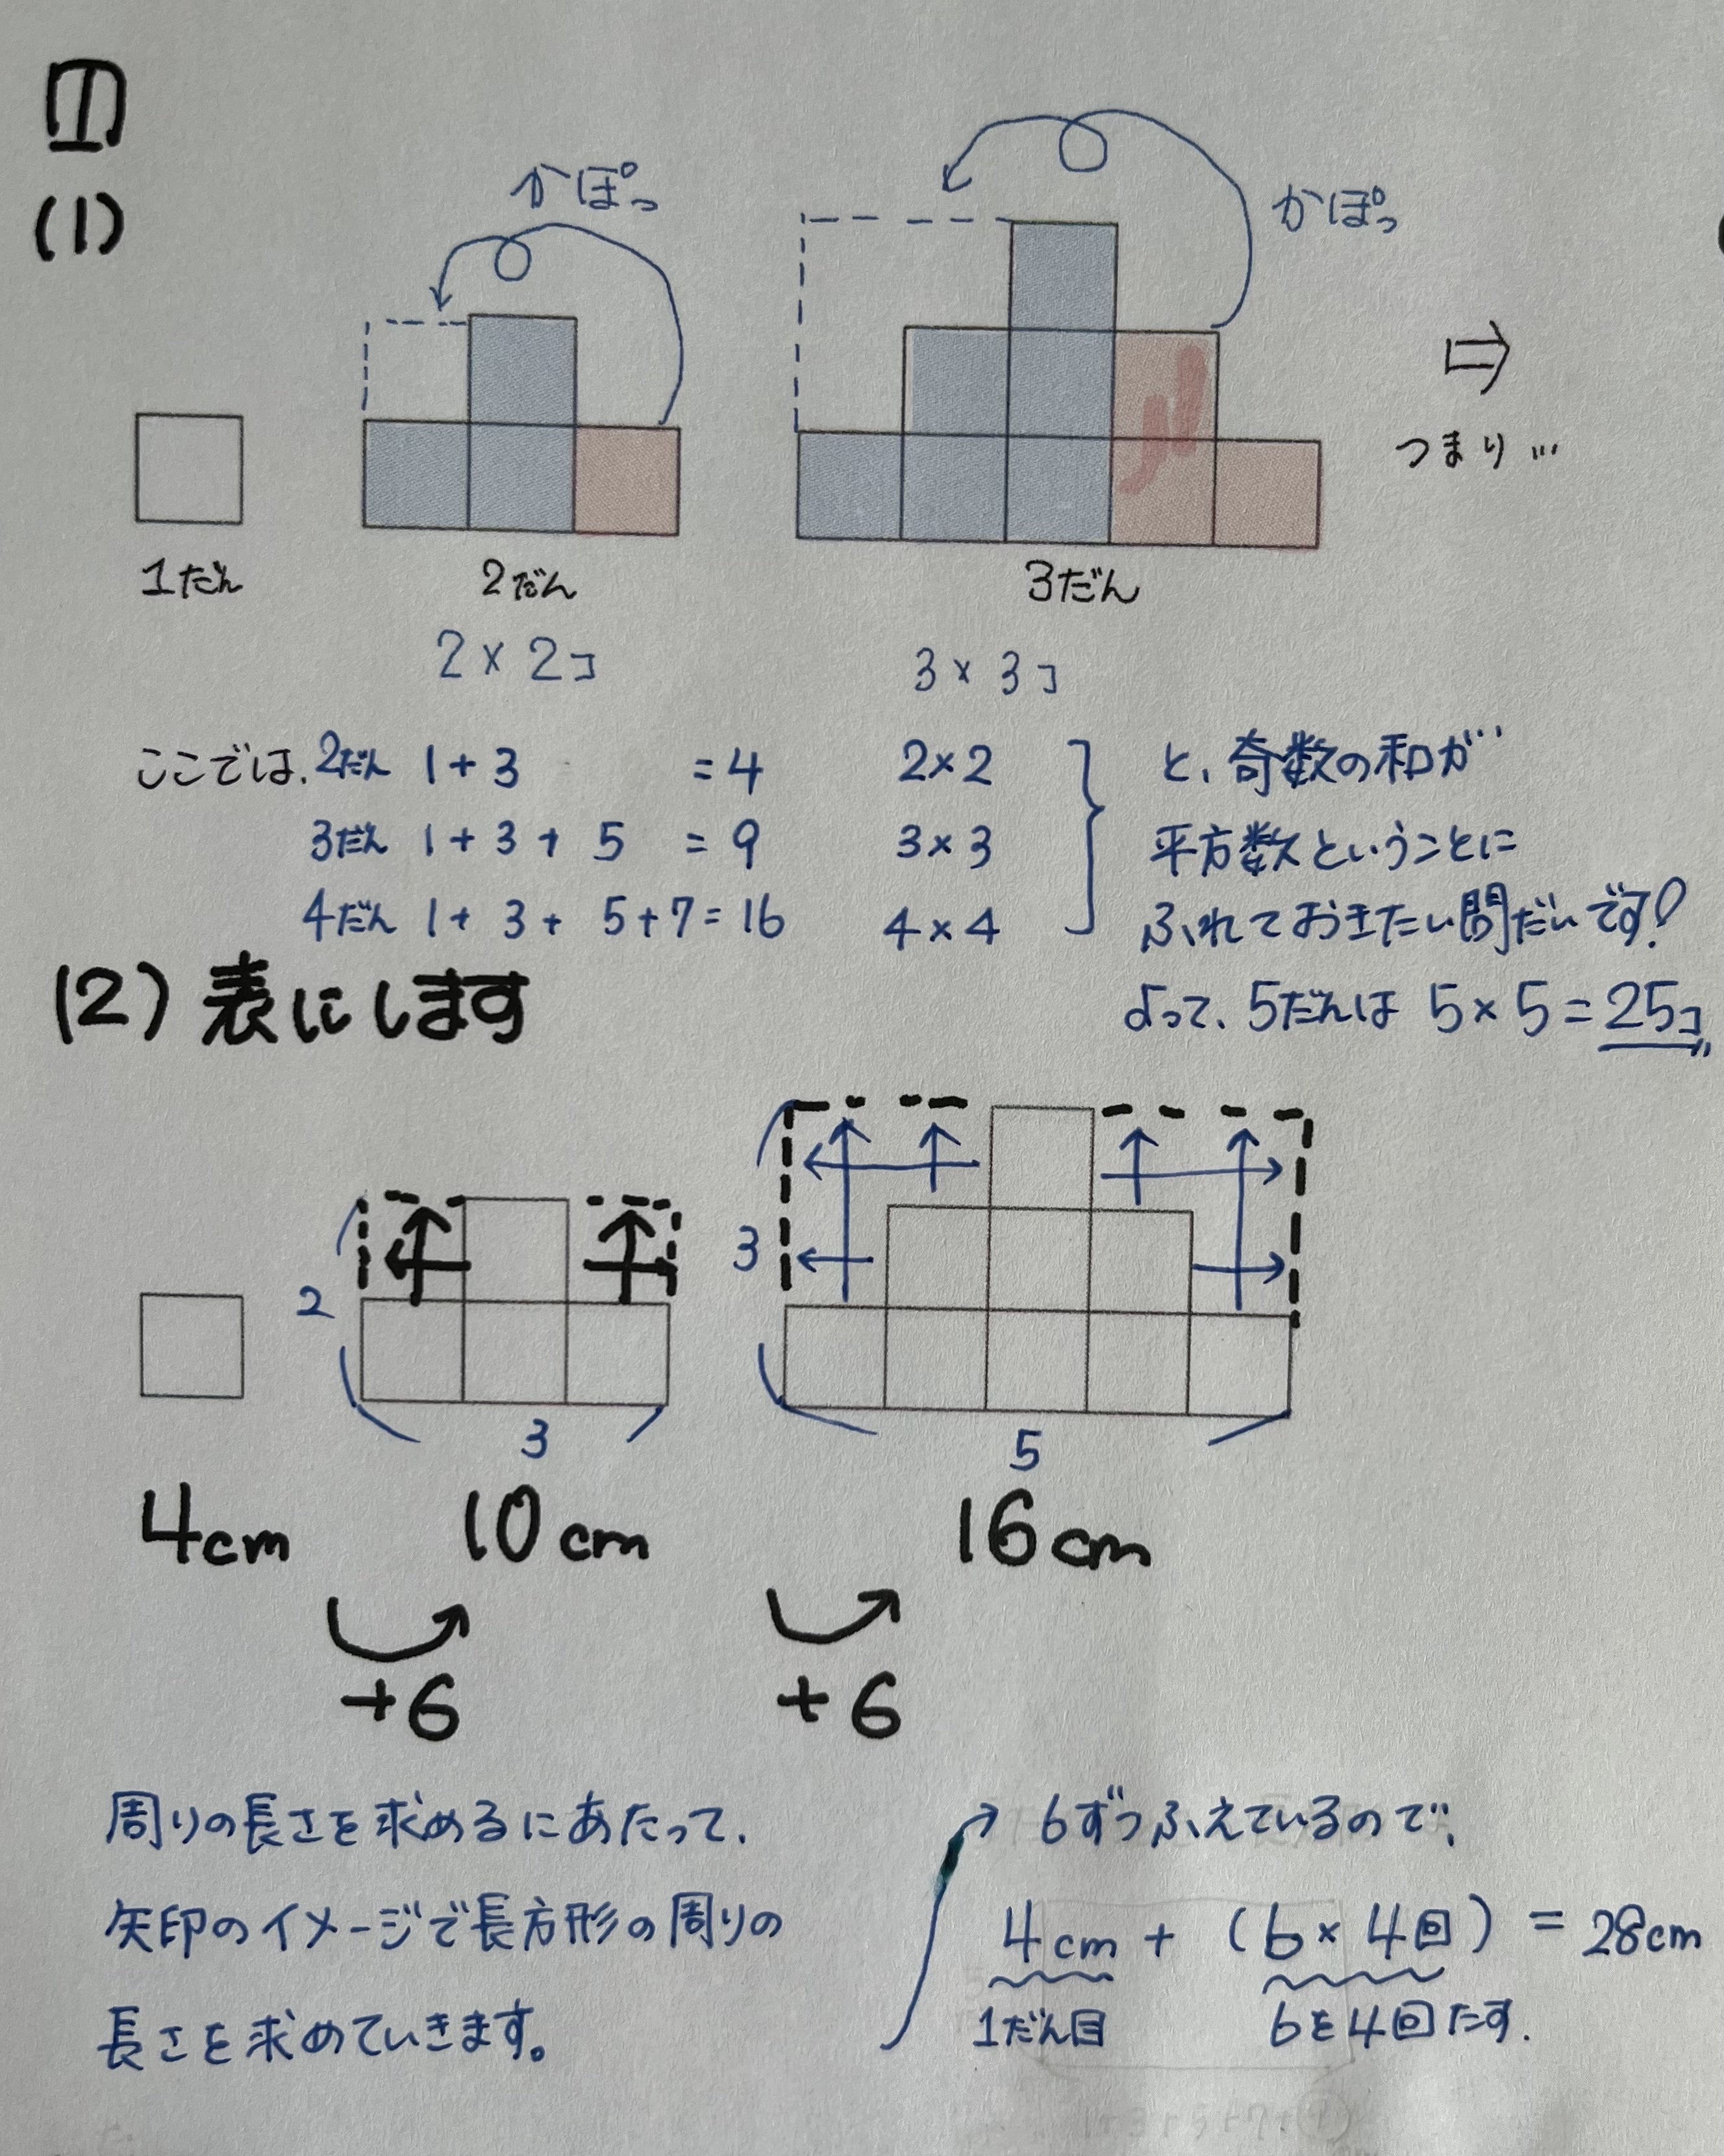 1
(1)
かぽっ
かぽっ
⇨
つまり…
1だん 2だん 3だん
2×2コ 3×3コ
ここでは、2だん 1+3 =4 2×2 と、奇数の和が
3だん 1+3+5 =9 3×3 平方数ということに
4だん 1+3+5+7=16 4×4 ふれておきたい問だいです!
よって、5だんは 5×5=25コ
(2) 表にします
2 3
3 5
4cm 10cm 16cm
+6 +6
周りの長さを求めるにあたって、
矢印のイメージで長方形の周りの
長さを求めていきます。
6ずつふえているので、
4cm + (6×4回) = 28cm
1だん目 6を4回たす.